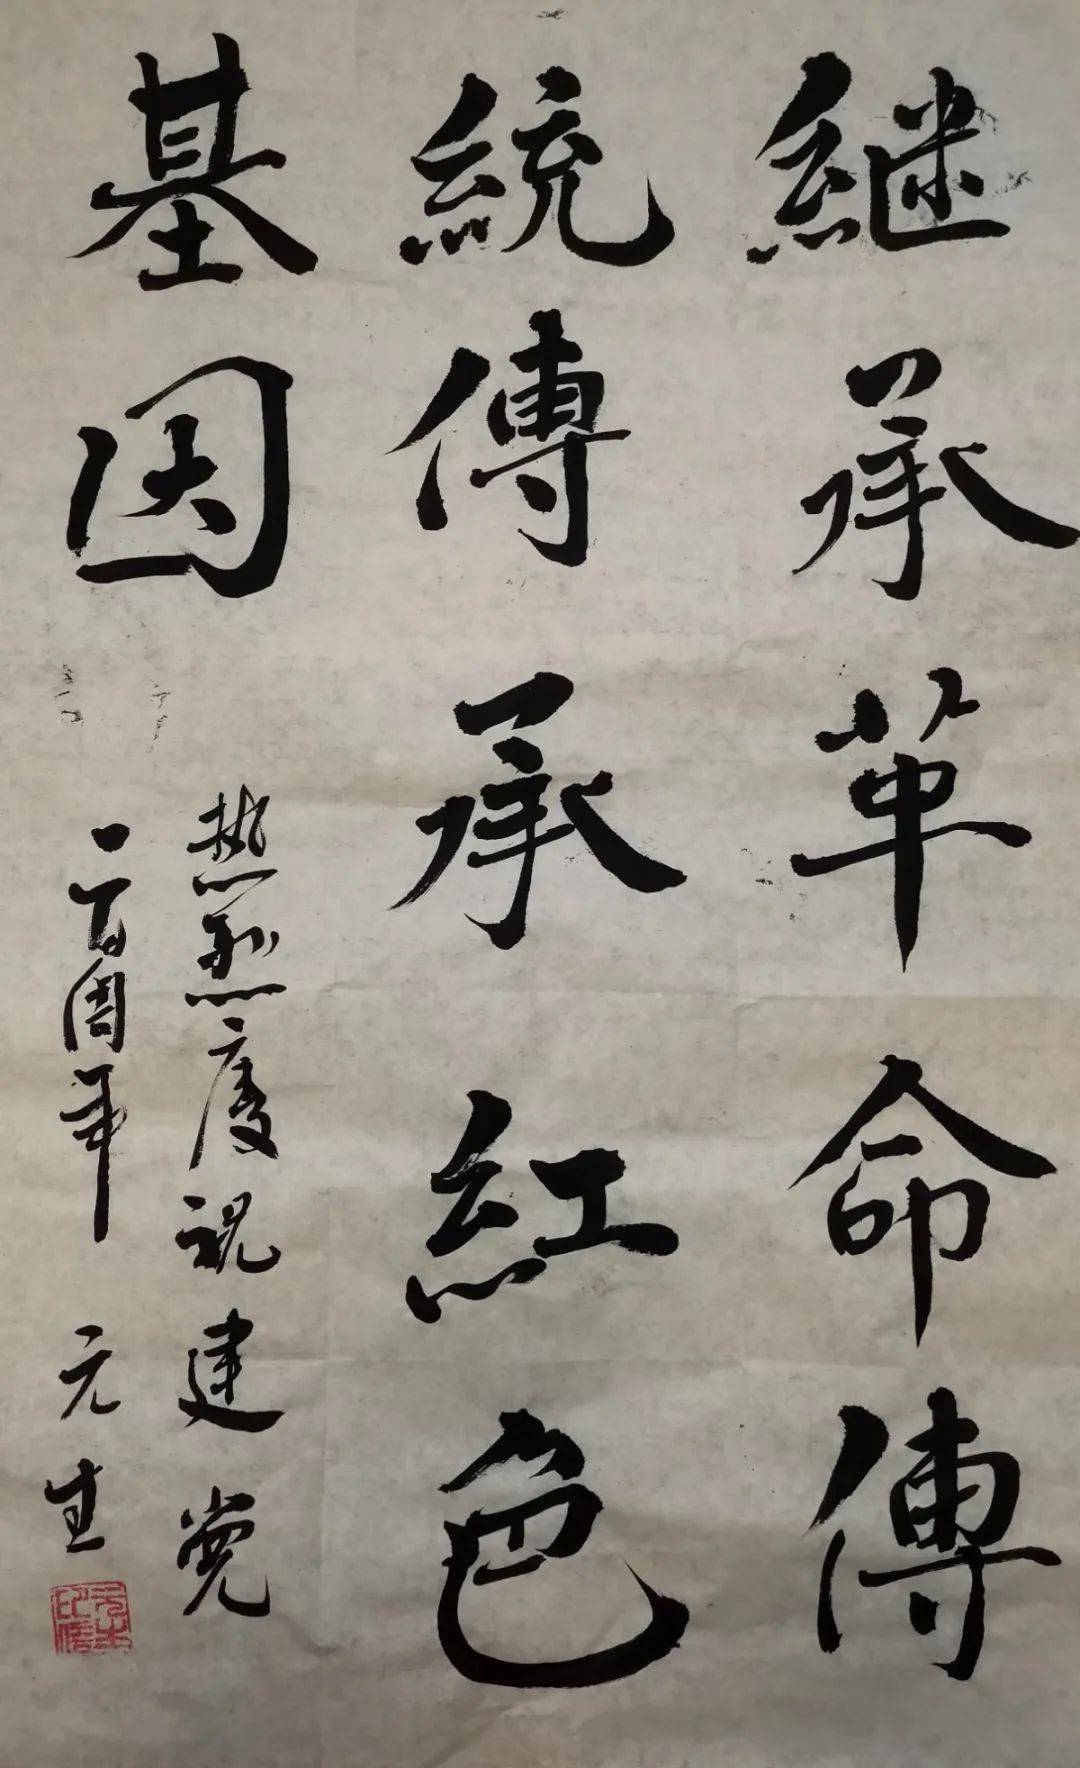 継承革命傳
統傳承紅色
基因
热烈庆祝建党
一百周年 元生